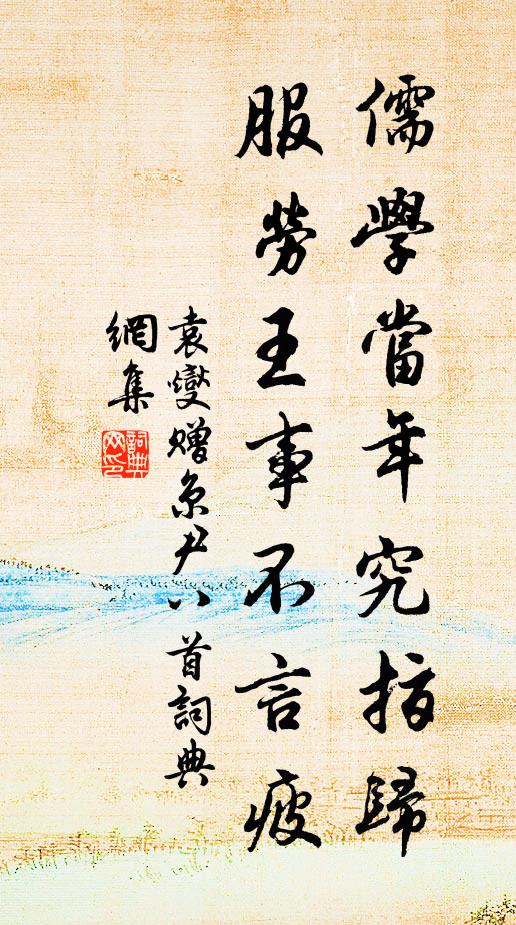 儒學當年究指歸
服勞王事不言疲
袁燮贈京尹八首詞典
網集
詞典網印